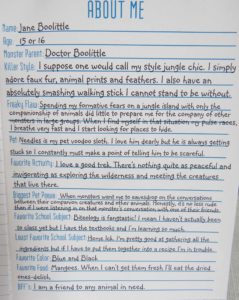 ABOUT ME
Name Jane Boolittle
Age 15 or 16
Monster Parent Doctor Boolittle
Killer Style: I suppose one would call my style jungle chic. I simply
adore faux fur, animal prints and feathers. I also have an
absolutely smashing walking stick I cannot stand to be without.
Freaky Flaw Spending my formative fears on a jungle island with only the
companionship of animals did little to prepare me for the company of other
monsters in large groups. When I find myself in that situation my pulse races,
I breathe very fast and I start looking for places to hide.
Pet Needles is my pet voodoo sloth. I love him dearly but he is always getting
stuck so I constantly must make a point of telling him to be careful.
Favorite Activity I love a good trek. There's nothing quite as peaceful and
invigorating as exploring the wilderness and meeting the creatures
that live there.
Biggest Pet Peeve When monsters want me to eavesdrop on the conversations
between their companion creatures and other animals. Honestly, it's no less rude
than if I were listening in on that monster's conversation with one of their friends.
Favorite School Subject Biteology is fangtastic! I mean I haven't actually been
to class yet but I have the textbooks and I'm learning so much.
Least Favorite School Subject Home Ick. I'm pretty good at gathering all the
ingredients but if I have to put them together into a recipe I'm in trouble.
Favorite Color Blue and Black
Favorite Food Mangoes. When I can't get them fresh I'll eat the dried
ones-delish.
BFF's I am a friend to any animal in need.